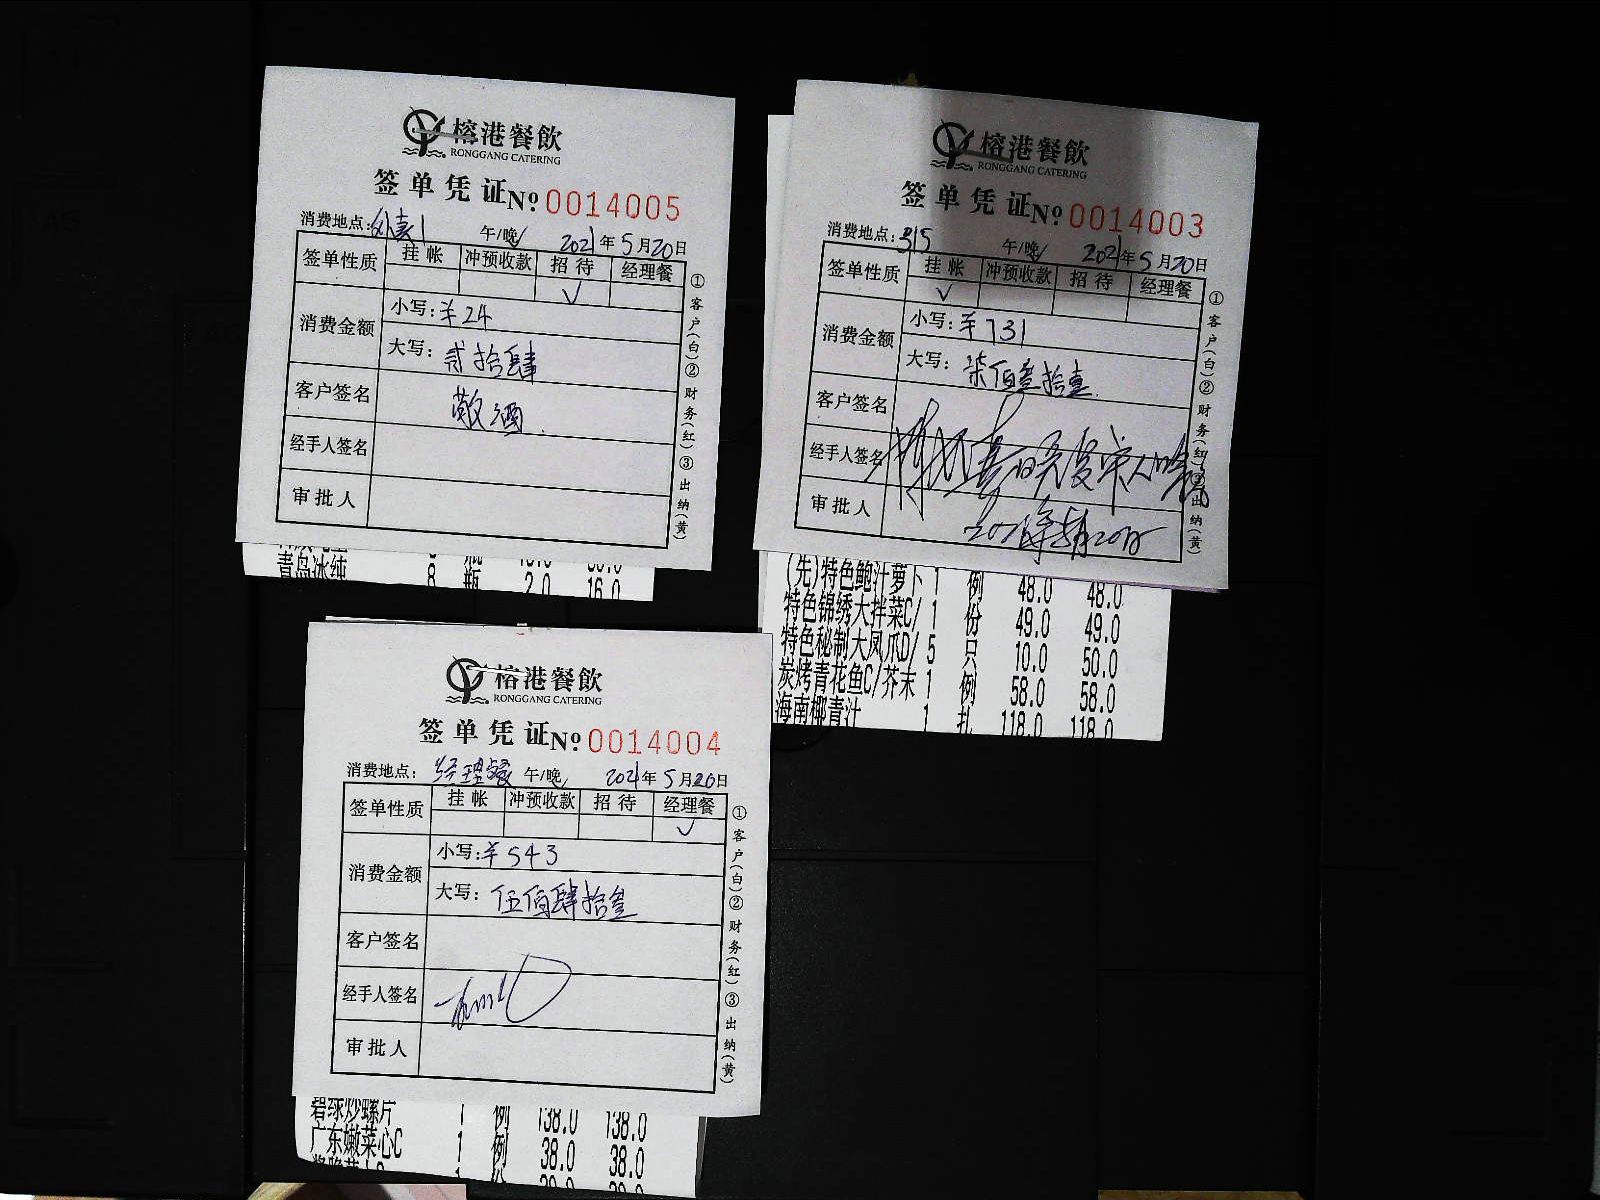 榕港餐飲
RONGGANG CATERING
签单凭证 No: 0014005
消费地点: 午/晚 2021年5月20日
签单性质 挂帐 冲预收款 招待 经理餐
✓
消费金额 小写:¥24
大写:贰拾肆
客户签名 敬酒
经手人签名
审批人
①客户(白)②财务(红)③出纳(黄)
青岛冰纯 8 瓶 2.0 16.0
榕港餐飲
RONGGANG CATERING
签单凭证 No: 0014003
消费地点:315 午/晚 2021年5月20日
签单性质 挂帐 冲预收款 招待 经理餐
✓
消费金额 小写:¥731
大写:柒佰叁拾壹
客户签名
经手人签名
审批人 2021年5月20日
①客户(白)②财务(红)③出纳(黄)
(先)特色鲍汁萝卜 1 例 48.0 48.0
特色锦绣大拌菜C/ 1 份 49.0 49.0
特色秘制大凤爪D/ 5 只 10.0 50.0
炭烤青花鱼C/芥末 1 例 58.0 58.0
海南椰青汁 1 扎 118.0 118.0
榕港餐飲
RONGGANG CATERING
签单凭证 No: 0014004
消费地点:经理餐 午/晚 2021年5月20日
签单性质 挂帐 冲预收款 招待 经理餐
✓
消费金额 小写:¥543
大写:伍佰肆拾叁
客户签名
经手人签名
审批人
①客户(白)②财务(红)③出纳(黄)
碧绿炒螺片 1 例 138.0 138.0
广东嫩菜心C 1 例 38.0 38.0